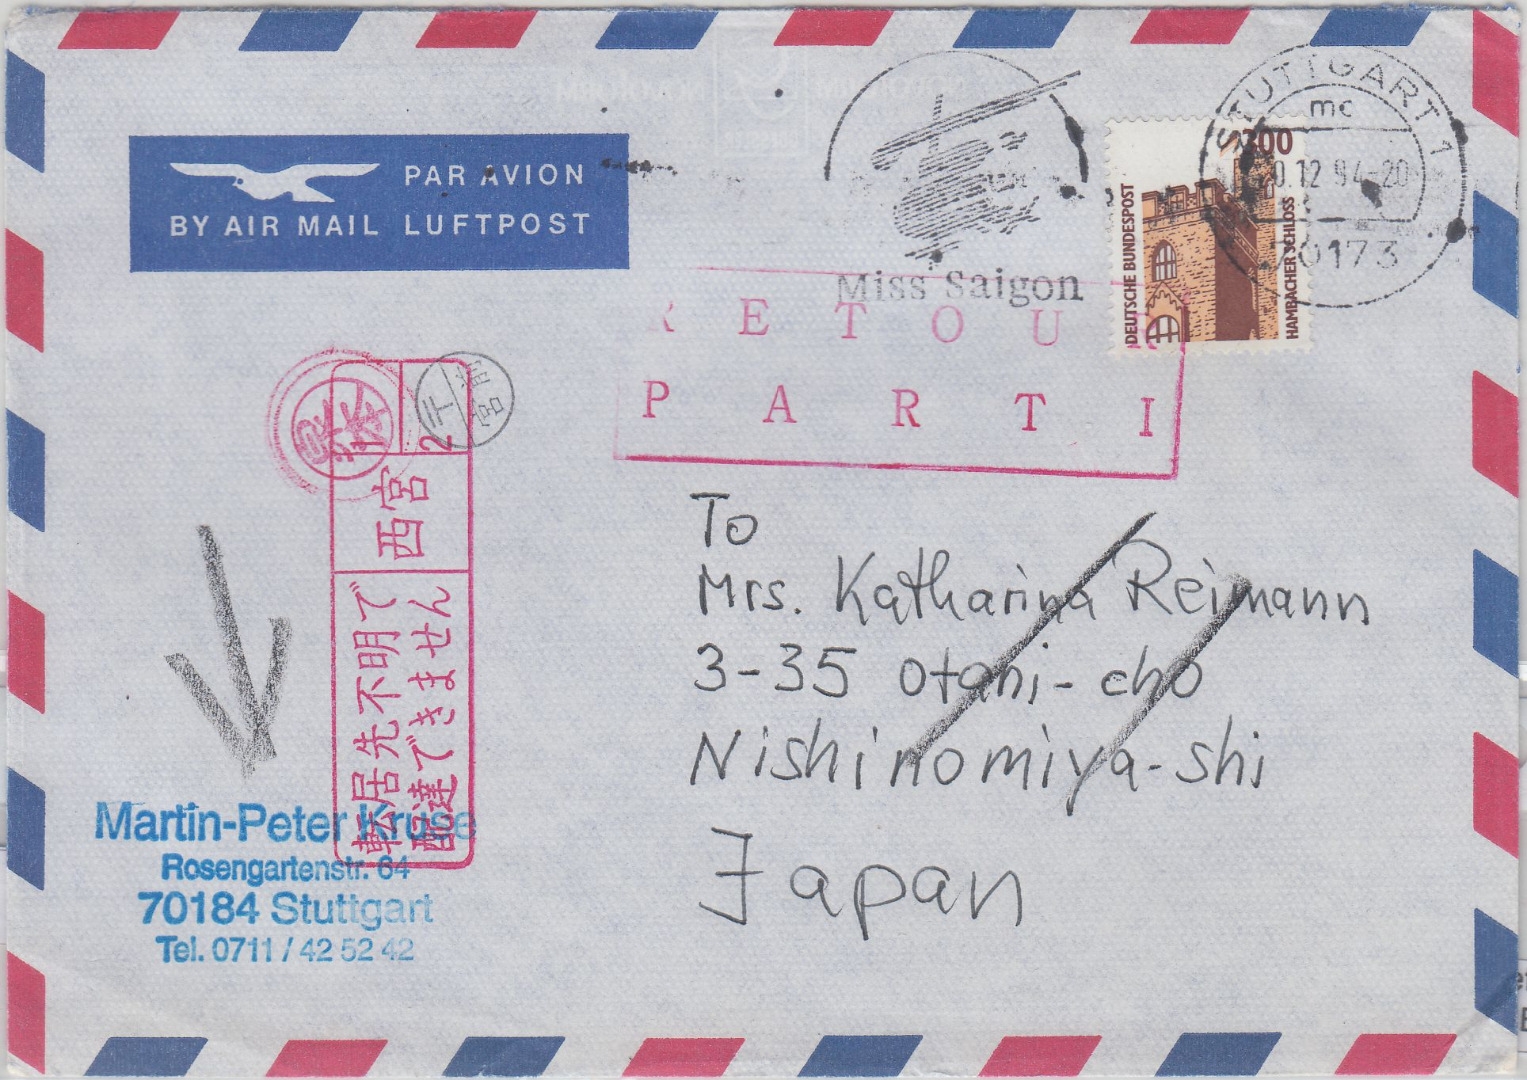 PAR AVION
BY AIR MAIL LUFTPOST
Miss Saigon
STUTTGART 1
mc
.12.94-20
70173
300
DEUTSCHE BUNDESPOST
HAMBACHER SCHLOSS
RETOUR
PARTI
1
2
西宮
転居先不明で
配達できません
To
Mrs. Katharina Reimann
3-35 Otani-cho
Nishinomiya-shi
Japan
Martin-Peter Kruse
Rosengartenstr. 64
70184 Stuttgart
Tel. 0711 / 42 52 42